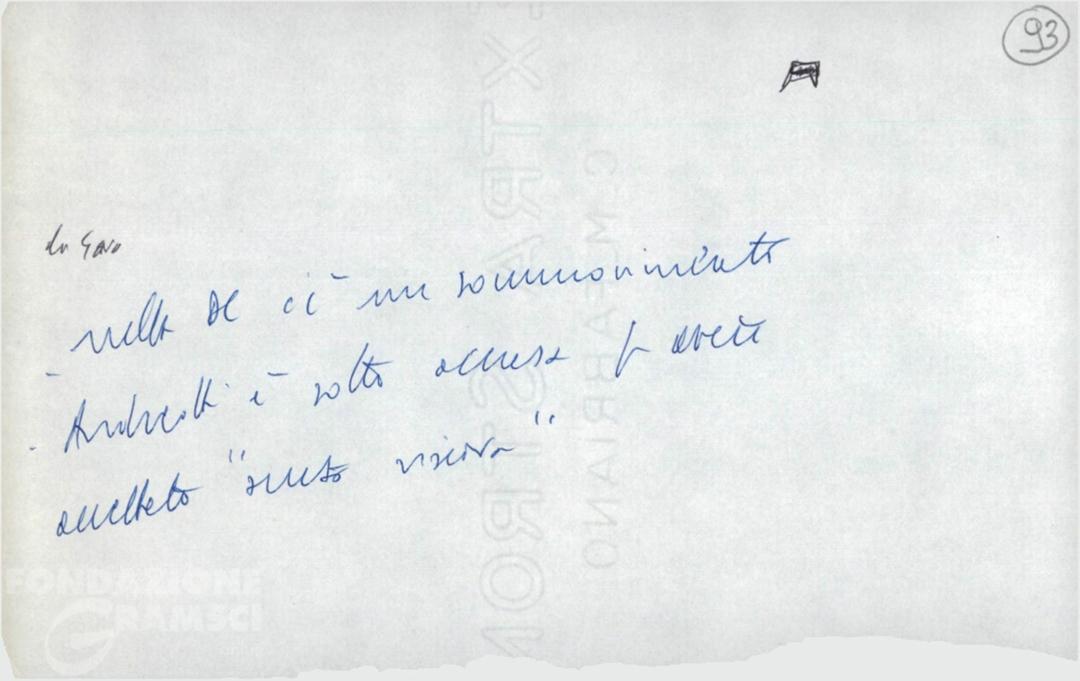 93
- nella DC c'è un sommovimento
- Andreotti è sotto accusa p avere
accettato "senza riserva"
FONDAZIONE
GRAMSCI